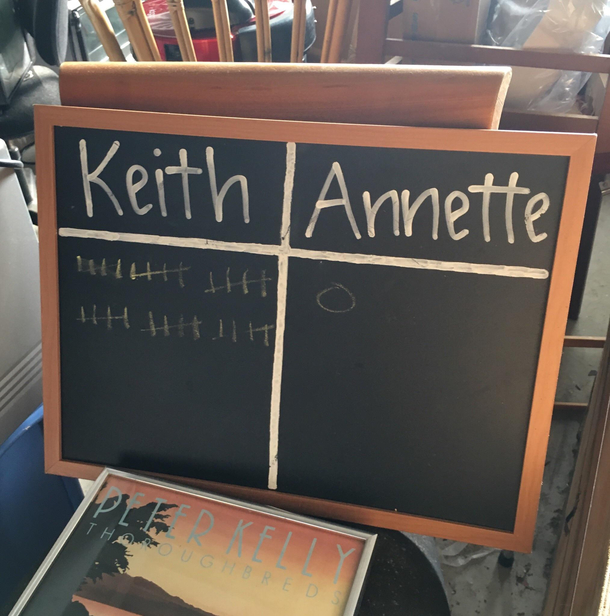 Keith Annette
O
PETER KELLY
THOROUGHBREDS